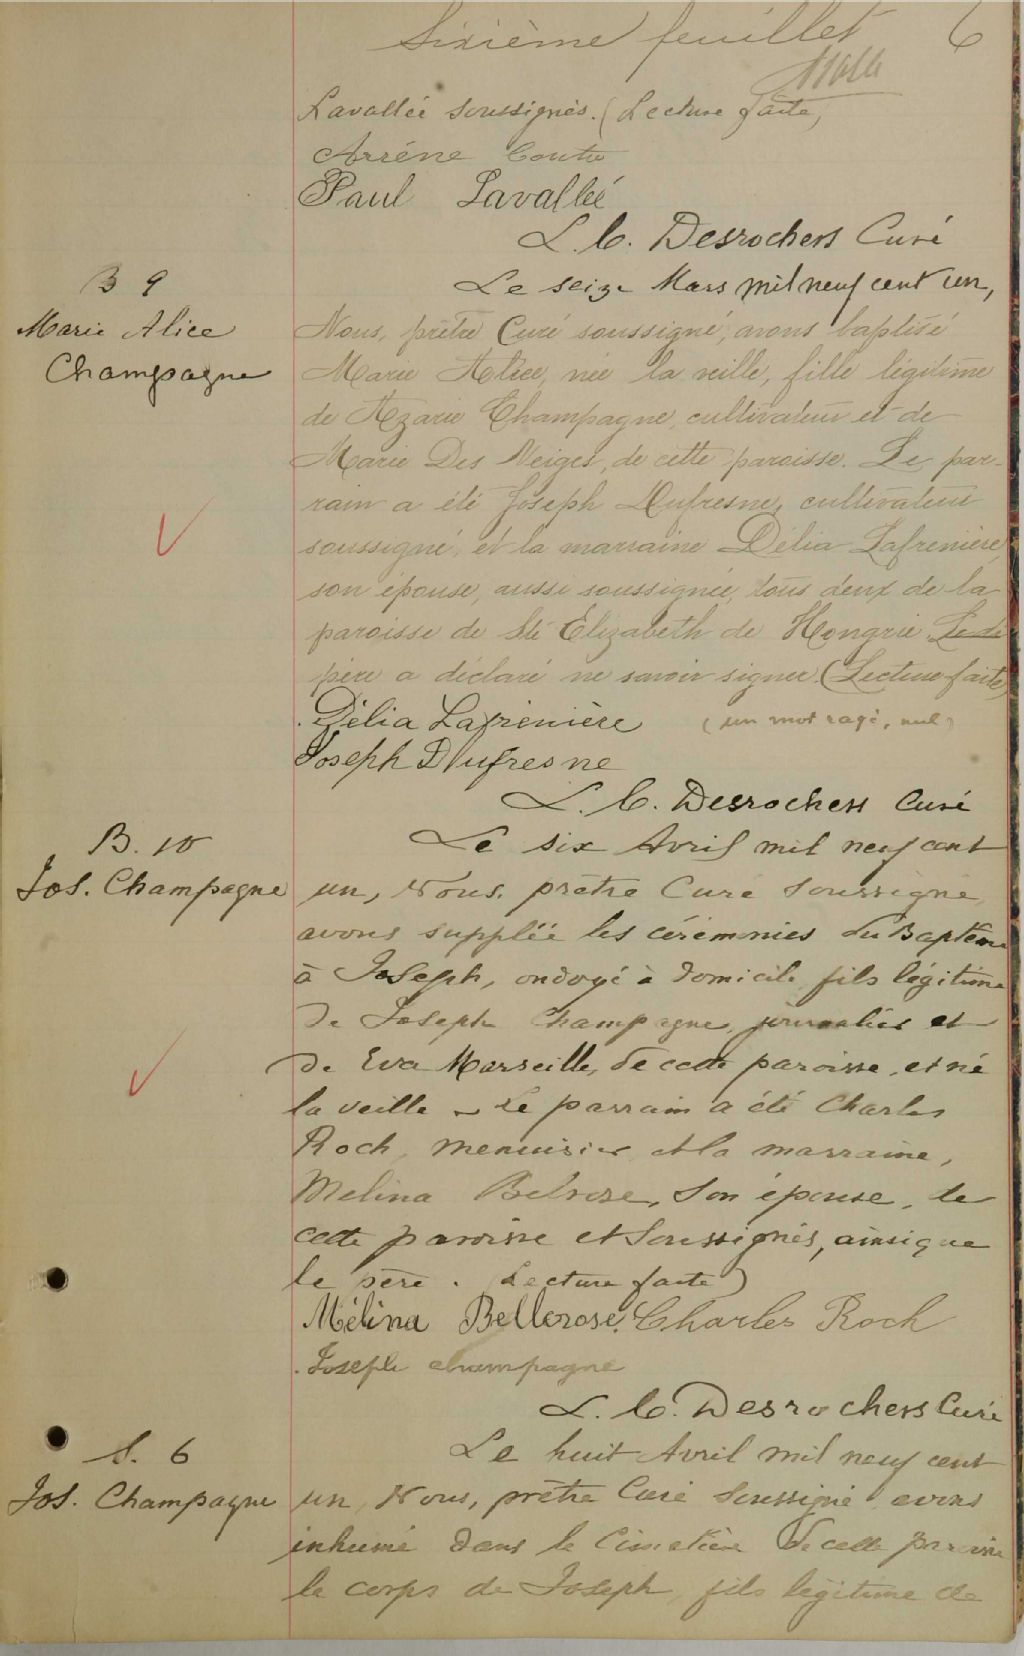 Sixième feuillet 6
Lavallée soussignés. (Lecture faite)
Arsène Coutu
Paul Lavallée
L. C. Desrochers Curé
B 9
Marie Alice
Champagne
Le seize Mars mil neuf cent un,
Nous, prêtre Curé soussigné, avons baptisé
Marie Alice, née la veille, fille légitime
de Azarie Champagne, cultivateur et de
Marie Des Neiges, de cette paroisse. Le par-
rain a été Joseph Dufresne, cultivateur
soussigné, et la marraine Délia Lafrenière,
son épouse, aussi soussignée, tous deux de la
paroisse de Ste Elizabeth de Hongrie. Le
père a déclaré ne savoir signer. (Lecture faite)
Délia Lafrenière (un mot rayé, nul)
Joseph Dufresne
L. C. Desrochers Curé
B. 10
Jos. Champagne
Le six Avril mil neuf cent
un, Nous, prêtre Curé soussigné,
avons supplée les cérémonies du Baptême
à Joseph, ondoyé à domicile, fils légitime
de Joseph Champagne, journalier et
de Eva Marseille, de cette paroisse, et né
la veille - Le parrain a été Charles
Roch, menuisier et la marraine,
Melina Belrose, son épouse, de
cette paroisse et soussignés, ainsi que
le père. (Lecture faite)
Mélina Bellerose. Charles Roch
Joseph champagne
L. C. Desrochers Curé
S. 6
Jos. Champagne
Le huit Avril mil neuf cent
un, Nous, prêtre Curé soussigné, avons
inhumé dans le Cimetière de cette paroisse
le corps de Joseph, fils légitime de